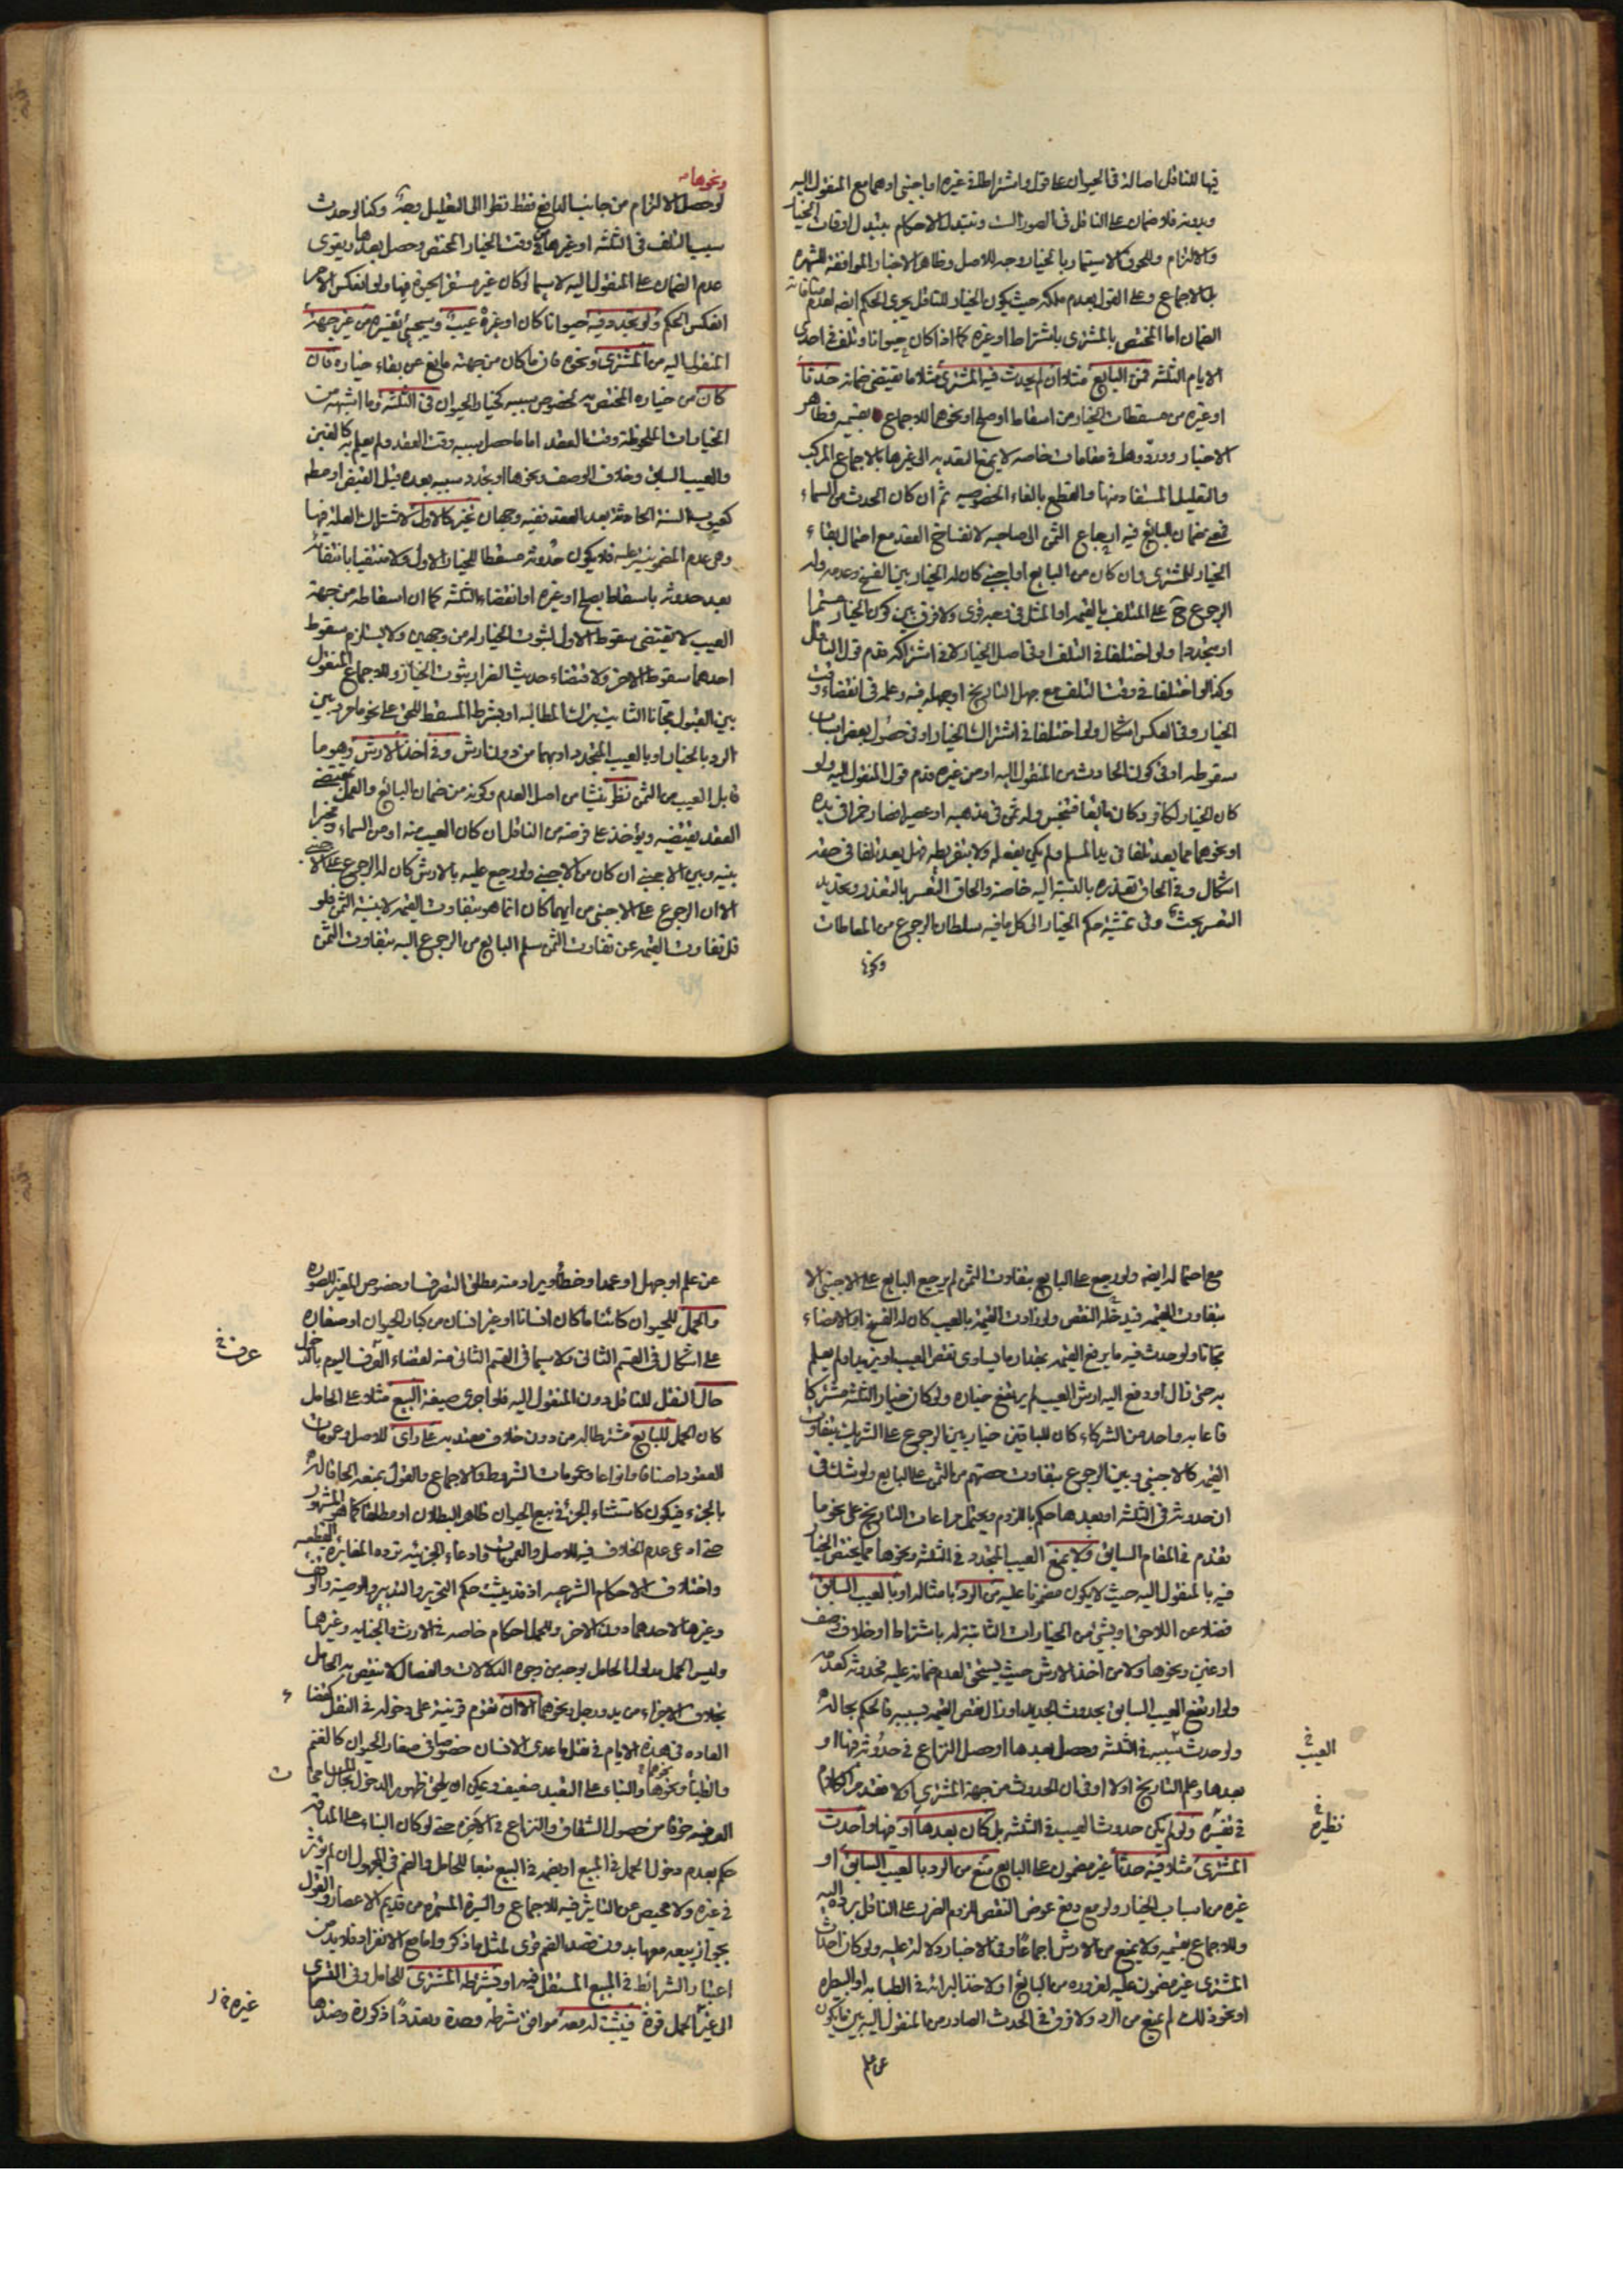 فيها للناقل اصالة في الحيوان على قول واشتراط له او لغيره اجنبي اوهما مع المنقول اليه
وبدونه فلا ضمان على الناقل في الصور الست وتتبدل الاحكام بتبدل اوقات الخيار
والالتزام ولحوق الاستيمار بالخيار وجه للاصل وظاهر الاخبار الموافقة للشهرة
بل الاجماع وعلى القول بعدم ملكه حيث يكون الخيار للناقل يجري الحكم ايضا لعدم منافاته
الضمان اما المختص بالمشتري باشتراط او غيره كما اذا كان حيوانا وتلف في احدى
الايام الثلثة فمن البايع مثلا ان لم يحدث فيه المشتري مثلا ما يقتضي ضمانه حدثا
او غيره من مسقطات الخيار من اسقاط او صلح او نحوهما للاجماع بقسميه وظاهر
الاخبار وورودها في مقامات خاصه لا يمنع التعديه الى غيرها بالاجماع المركب
والتعليل المستفاد منها والقطع بالغاء الخصوصيه ثم ان كان الحدث من السماء
فمعنى ضمان البائع فيه ارجاع الثمن الى صاحبه لانفساخ العقد مع احتمال بقاء
الخيار للمشتري وان كان من البايع او اجنبي كان له الخيار بين الفسخ وعدمه وله
الرجوع ح على المتلف بالقيمه او المثل في وجه قوي ولا فرق بين كون الخيار مستمرا
او متجددا ولو اختلفا في التلف او في اصل الخيار لا في اشتراكه يقدم قول الناقل
وكذا لو اختلفا في وقت التلف مع جهل التاريخ او جهله فيه وعلمه في انقضاء وقت
الخيار وفي العكس اشكال ولو اختلفا في اشتراك الخيار او في حصول بعض اسباب
سقوطه او في كون الحادث من المنقول اليه او من غيره قدم قول المنقول اليه ولو
كان الخيار لكافر وكان مايعا فتنجس وله ثمن في مذهبه او عصيرا فصار خمرا في يده
او نحوهما مما يعد تلفا في يد المسلم ولم يكن بفعله ولا بتفريطه فهل يعد تلفا في حقه
اشكال وفي الحاق تعذره بالنسبة اليه خاصة والحاق التعسر بالتعذر وتحديد
التعسر بحث وفي تمشية حكم الخيار الى كل ما فيه سلطان الرجوع من المعاطات
ونحوها
ونحوها
لو حصل الالتزام من جانب الدافع فقط نظرا الى التعليل وجه وكذا لو حدث
سبب التلف في الثلثة او غيرها من وقت الخيار المختص وحصل بعدها ويقوى
عدم الضمان على المنقول اليه لا سيما لو كان غير مستقر الحيوة فيها ولو انعكس الامر
انعكس الحكم ولو تجدد فيه حيوانا كان او غيره عيب وسيجيئ تفسيره من غير جهة
المنقول اليه من المشتري ونحوه فان ما كان من جهته مانع عن بقاء خياره فان
كان من خياره المختص به لخصوص سببه كخيار الحيوان في الثلثة وما اشبهه من
الخيارات الملحوظة وقت العقد اما ما حصل سببه وقت العقد ولم يعلم به كالغبن
والعيب السابق وخلاف الوصف ونحوها او تجدد سببه بعده قبل القبض او مطلقا
كعيوب السنة الحادثة بعد العقد ففيه وجهان غير كالاول لاشتراك العلة فيها
وهي عدم المضمونية عليه فلا يكون حدوثه مسقطا للخيار الاول ولا منتفيا بانتفائه
بعد حدوثه باسقاط بصلح او غيره او انقضاء الثلثة كما ان اسقاطه من جهة
العيب لا يقتضي سقوط الاول لثبوت الخيار له من وجهين ولا يستلزم سقوط
احدهما سقوط الاخر ولاقتضاء حديث الضرار ثبوت الخيار وللاجماع المنقول
بين القبول مجانا الثابت بترك المطالبة او بشرط المسقط للحق على نحو ما مر وبين
الرد بالخيار او بالعيب المتجدد او بهما من دون ارش وفي اخذ الارش وهو ما
قابل العيب من الثمن نظر ينشا من اصل العدم وكونه من ضمان البائع والعمل بمقتضى
العقد يقتضيه ويؤخذ على فرضه من الناقل ان كان العيب منه او من السماء ومخيرا
بينه وبين الاجنبي ان كان من الاجنبي ولو رجع عليه بالارش كان له الرجوع على الاجنبي
الا ان الرجوع على الاجنبي من ايهما كان انما هو بتفاوت القيمه لا بنسبة الثمن فلو
قل تفاوت القيمه عن تفاوت الثمن سلم البايع من الرجوع اليه بتفاوت الثمن
مع احتماله ايضه ولو رجع على البايع بتفاوت الثمن لم يرجع البايع على الاجنبي الا
بتفاوت القيمه فيدخله النقص ولو زادت القيمه بالعيب كان له الفسخ او الامضاء
مجانا ولو حدث فيه ما يرفع القيمه بمقدار ما يساوي نقص العيب او يزيد او لم يعلم
به حتى زال او دفع اليه ارش العيب لم يرتفع خياره ولو كان خيار الثلثة مشتركا
فاعابه واحد من الشركاء كان للباقين خيار بين الرجوع على الشريك بتفاوت
القيمه كالاجنبي وبين الرجوع بتفاوت حصتهم من الثمن على البايع ولو شك في
ان حدوثه في الثلثة او بعدها حكم باللزوم ويحتمل مراعات التاريخ على نحو ما
تقدم في المقام السابق ولا يمنع العيب المتجدد في الثلثة ونحوها مما يختص الخيار
فيه بالمنقول اليه حيث لا يكون مضمونا عليه من الرد بامثاله او بالعيب السابق
فضلا عن اللاحق او بشئ من الخيارات الثابتة له باشتراط او خلاف وصف
او غبن ونحوها ولا من اخذ الارش حيث يستحق لعدم ضمانه عليه فحدوثه كعدمه
ولو ارتفع العيب السابق بحدوث الجديد او زال نقص القيمه بسببه فالحكم بحاله
ولو حدث سببه في الثلثة وحصل بعدها او حصل النزاع في حدوثه فيها او
العيب في
بعدها وعلم التاريخ اولا او في ان الحدوث من جهة المشتري اولا فقد مر الكلام
في نظيره
في تفسيره ولو لم يكن حدوث العيب في الثلثة بل كان بعدها او فيها واحدث
المشتري مثلا فيه حدثا غير مضمون على البايع منع من الرد بالعيب السابق او
غيره من اسباب الخيار ولو مع دفع عوض النقص للزوم الضرر على الناقل برده اليه
وللاجماع بقسميه ولا يمنع من الارش اجماعا وفي الاخبار دلالة عليه ولو كان احداث
المشتري غير مضمون عليه لغروره من البائع او لاخذ البرائه في الطبابه او البيطره
او نحو ذلك لم يمنع من الرد ولا فرق في الحدث الصادر من المنقول اليه بين ما يكون
عن علم
عن علم او جهل او عمد او خطأ ويراد منه مطلق التصرف او خصوص المغير للصوره
والحمل للحيوان كائنا ما كان انسانا او غير انسان من كبار الحيوان او صغاره
على اشكال في القسم الثاني ولا سيما في القسم الثاني منه لقضاء العرف اليوم بالدخول
عرف في
حال النقل للناقل دون المنقول اليه فلو اجرى صيغة البيع مثلا على الحامل
كان الحمل للبايع مشترطا له من دون خلاف معتد به على راى للاصل وعمومات
العقود اصنافا وانواعا وعمومات الشروط والاجماع والقول بمنعه الحاقا له
بالجزء فيكون كاستثناء الجزء في بيع الحيوان ظاهر البطلان او مطلقا كما هو المشهور
حتى ادعى عدم الخلاف فيه للاصل والعمومات وادعاء الجزئية ترده المغايرة القطعيه
واختلاف الاحكام الشرعيه اذ قد يثبت حكم التحرير والتدبير والوصية والوقف
وغيرها لاحدهما دون الاخر وللحمل احكام خاصه في الارث والجنايه وغيرهما
وليس الحمل مدلولا للحامل بوجه من وجوه الدلالات وانفصاله لا ينقص به الحامل
بخلاف الاجزاء من يد ورجل ونحوهما الا ان تقوم قرينة على دخوله في النقل كقضاء
العاده في هذه الايام في نقل ما عدى الانسان خصوصا في صغار الحيوان كالغنم
والظباء ونحوها والبناء على التقييد ضعيف ويمكن ان يلحق ظهور الدخول بحال
العرضه خوفا من حصول الشقاق والنزاع في الاخره حتى لو كان البناء على المداقه
حكم بعدم دخول الحمل في المبيع او يضمه في البيع تبعا للحامل والضم في المجهول ان لم يؤثر
في غيره ولا محيص عن التاثير فيه للاجماع والسيرة المستمرة من قديم الاعصار والقول
بجواز بيعه معها بدون قصد الضم قوي لمثل ما ذكر واما مع الانفراد فلا بد من
اعتبار الشرائط في المبيع المستقل فيه او يشترطه المشتري للحامل وفي التسري
الى غير الحمل قوة فيثبت له بعد موافق شرطه وحدة وتعددا ذكورة وضدها
غيره